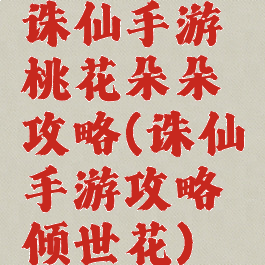 诛仙手游
桃花朵朵
攻略(诛仙
手游攻略
倾世花)